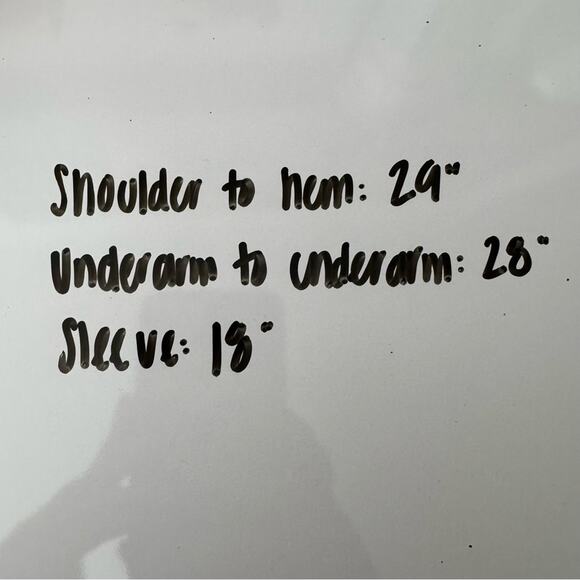 Shoulder to hem: 29"
Underarm to underarm: 28"
Sleeve: 18"